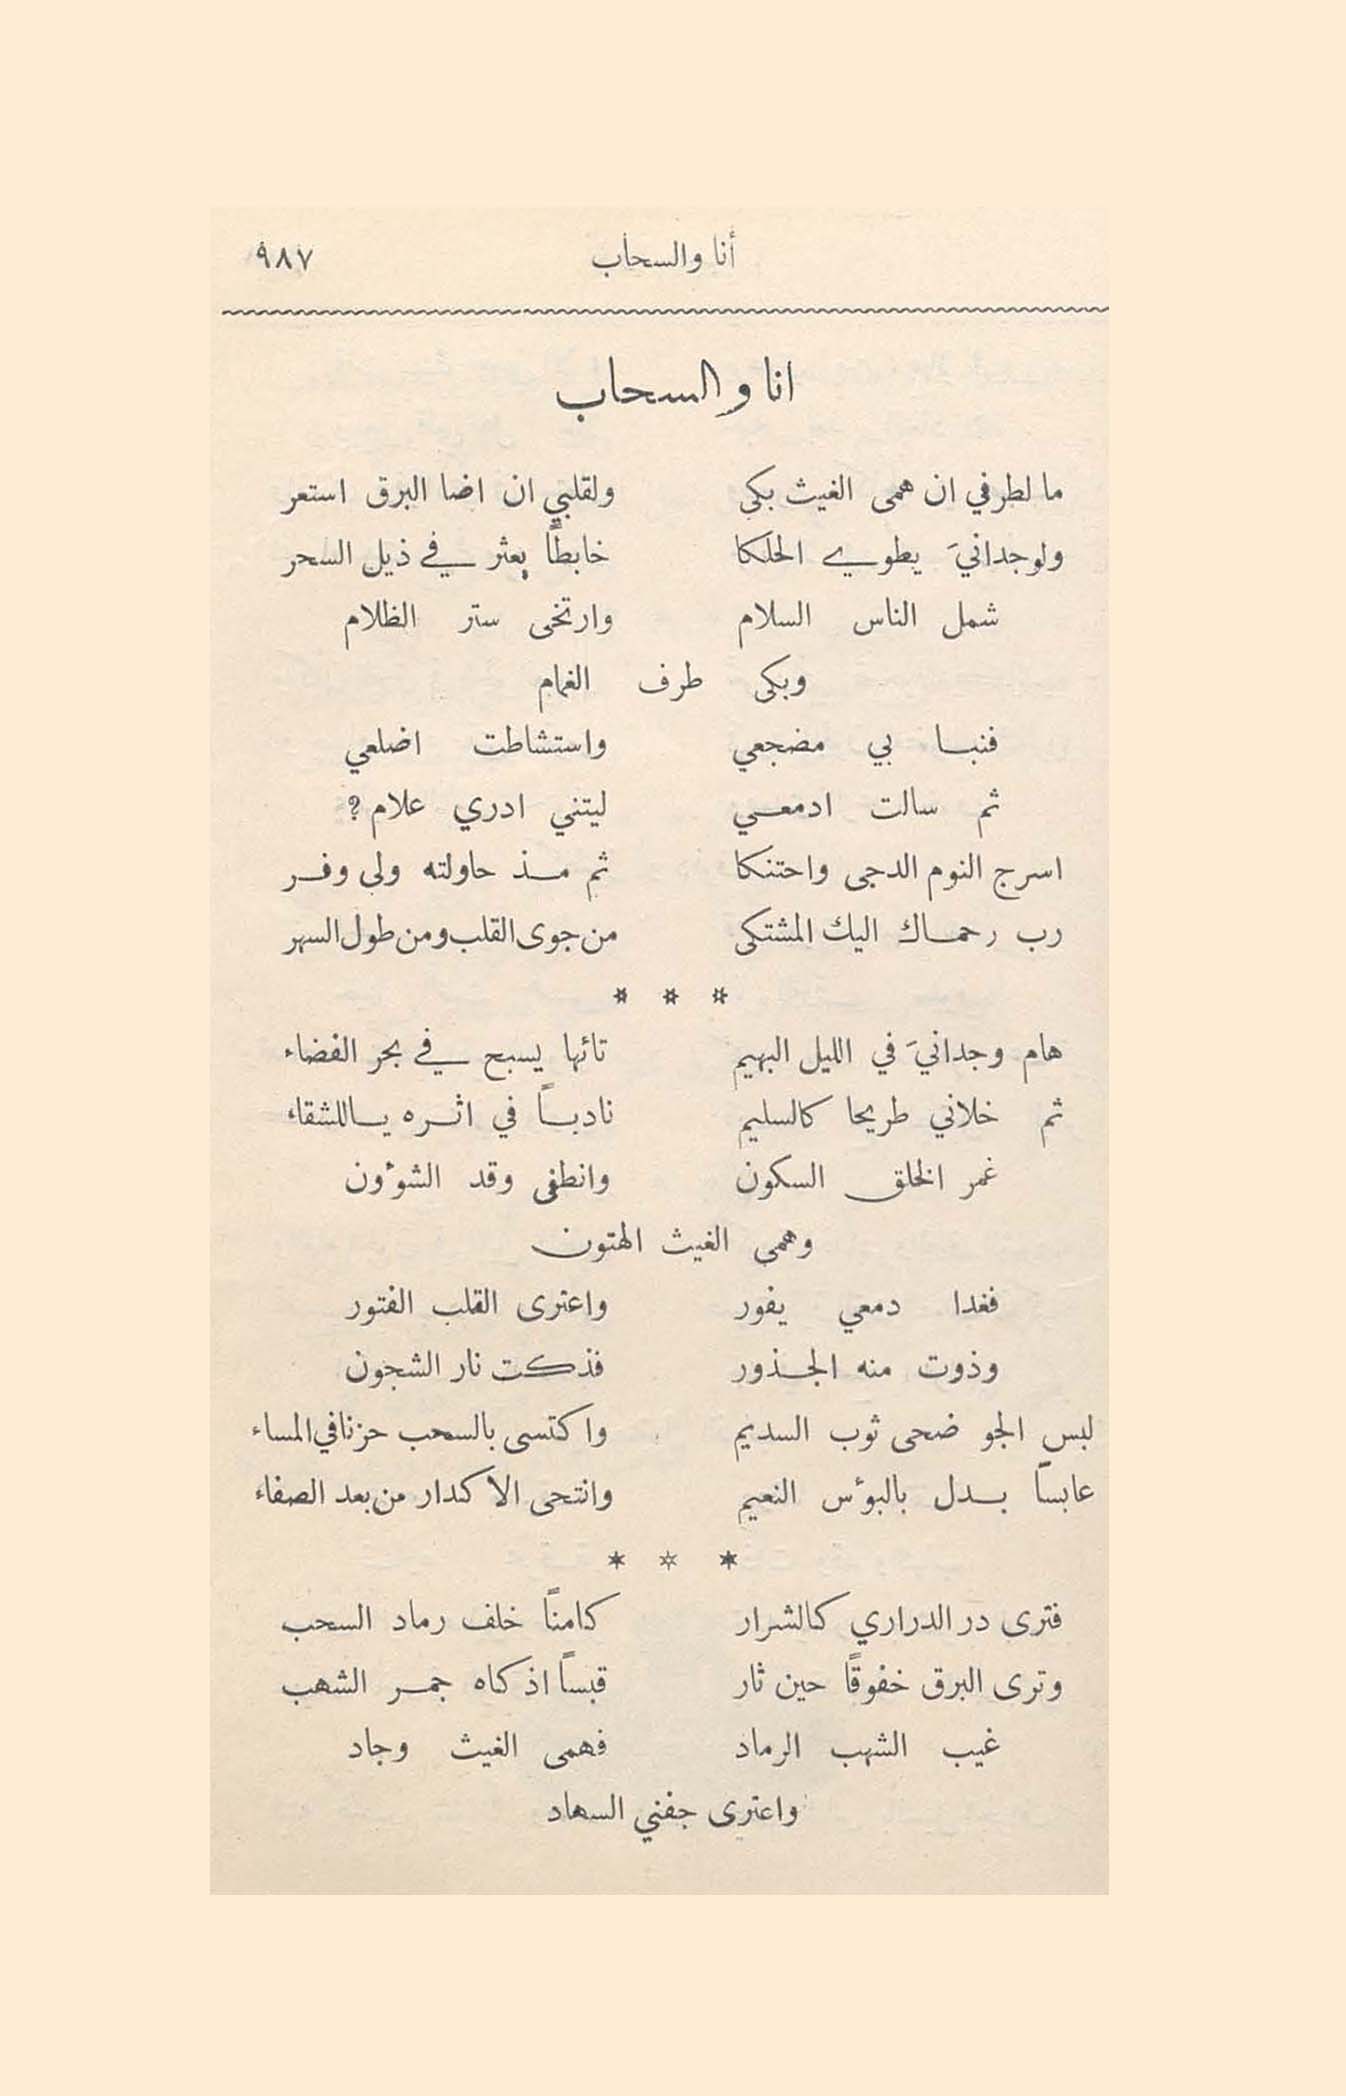 أنا والسحاب ٩٨٧
انا والسحاب
ما لطرفي ان همى الغيث بكى ولقلبي ان اضا البرق استعر
ولوجدانيَ يطوي الحلكا خابطاً يعثر في ذيل السحر
شمل الناس السلام وارتخى ستر الظلام
وبكى طرف الغمام
فنبا بي مضجعي واستشاطت اضلعي
ثم سالت ادمعي ليتني ادري علام ؟
اسرج النوم الدجى واحتنكا ثم مذ حاولته ولى وفر
رب رحماك اليك المشتكى من جوى القلب ومن طول السهر
* * *
هام وجدانيَ في الليل البهيم تائها يسبح في بحر الفضاء
ثم خلاني طريحا كالسليم نادباً في اثره ياللشقاء
غمر الخلق السكون وانطفى وقد الشوءون
وهمى الغيث الهتون
فغدا دمعي يفور واعترى القلب الفتور
وذوت منه الجذور فذكت نار الشجون
لبس الجو ضحى ثوب السديم واكتسى بالسحب حزنا في المساء
عابساً بدل بالبوءس النعيم وانتحى الاكدار من بعد الصفاء
* * *
فترى در الدراري كالشرار كامناً خلف رماد السحب
وترى البرق خفوقاً حين ثار قبساً اذكاه جمر الشهب
غيب الشهب الرماد فهمى الغيث وجاد
واعترى جفني السهاد